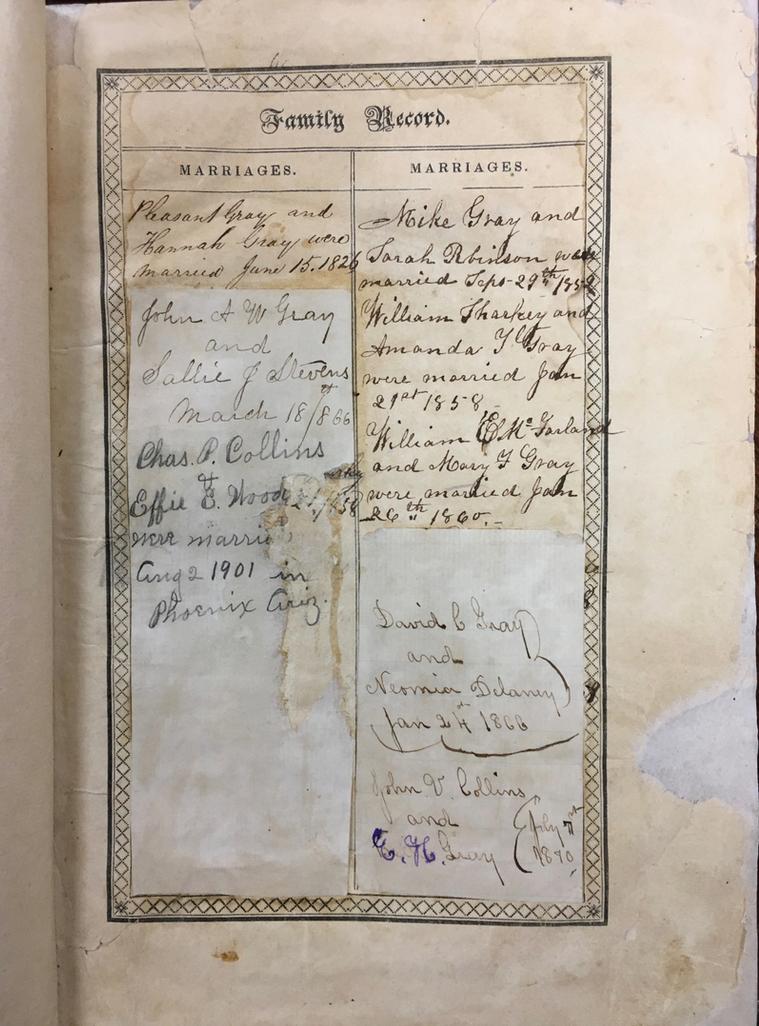 Family Record.
MARRIAGES.
Pleasant Gray and
Hannah Gray were
married June 15. 1826
John A W Gray
and
Sallie J Stevens
March 18/866
Chas. P. Collins
&
Effie E. Woods
were married
Aug 2 1901 in
Phoenix Ariz.
MARRIAGES.
Mike Gray and
Sarah Rbinson were
married Sept 29th
William Sharkey and
Amanda Gray
were married Jan
21st 1858
William E Mc Farland
and Mary F Gray
were married Jan
26th 1860.
David C Gray
and
Neomia Delaney
Jan 24th 1866
John V. Collins
and
E. H. Gray
July
1870